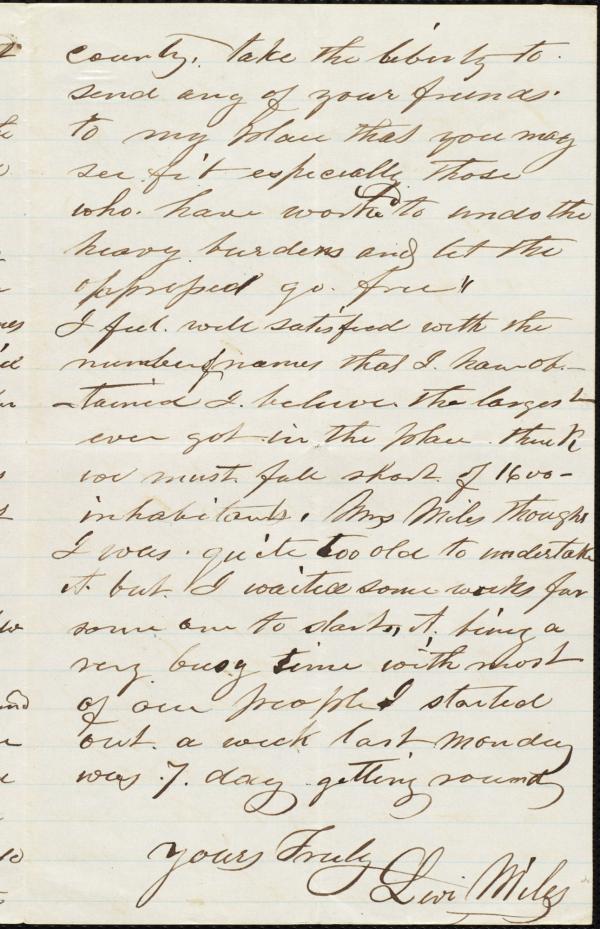 county. take the liberty to
send any of your friends
to my place that you may
see fit especially those
who have work'd to undo the
heavy burdens and let the
oppressed go free"
I feel well satisfied with the
number of names that I have ob-
-tained I believe the largest
ever got in the place think
we must fall short of 1600-
inhabitants, Mrs Miles thought
I was quite too old to undertake
it but I waited some weeks for
some one to start, it being a
very busy time with most
of our people I started
out a week last monday
was 7. day getting round
yours Truly
Levi Miles